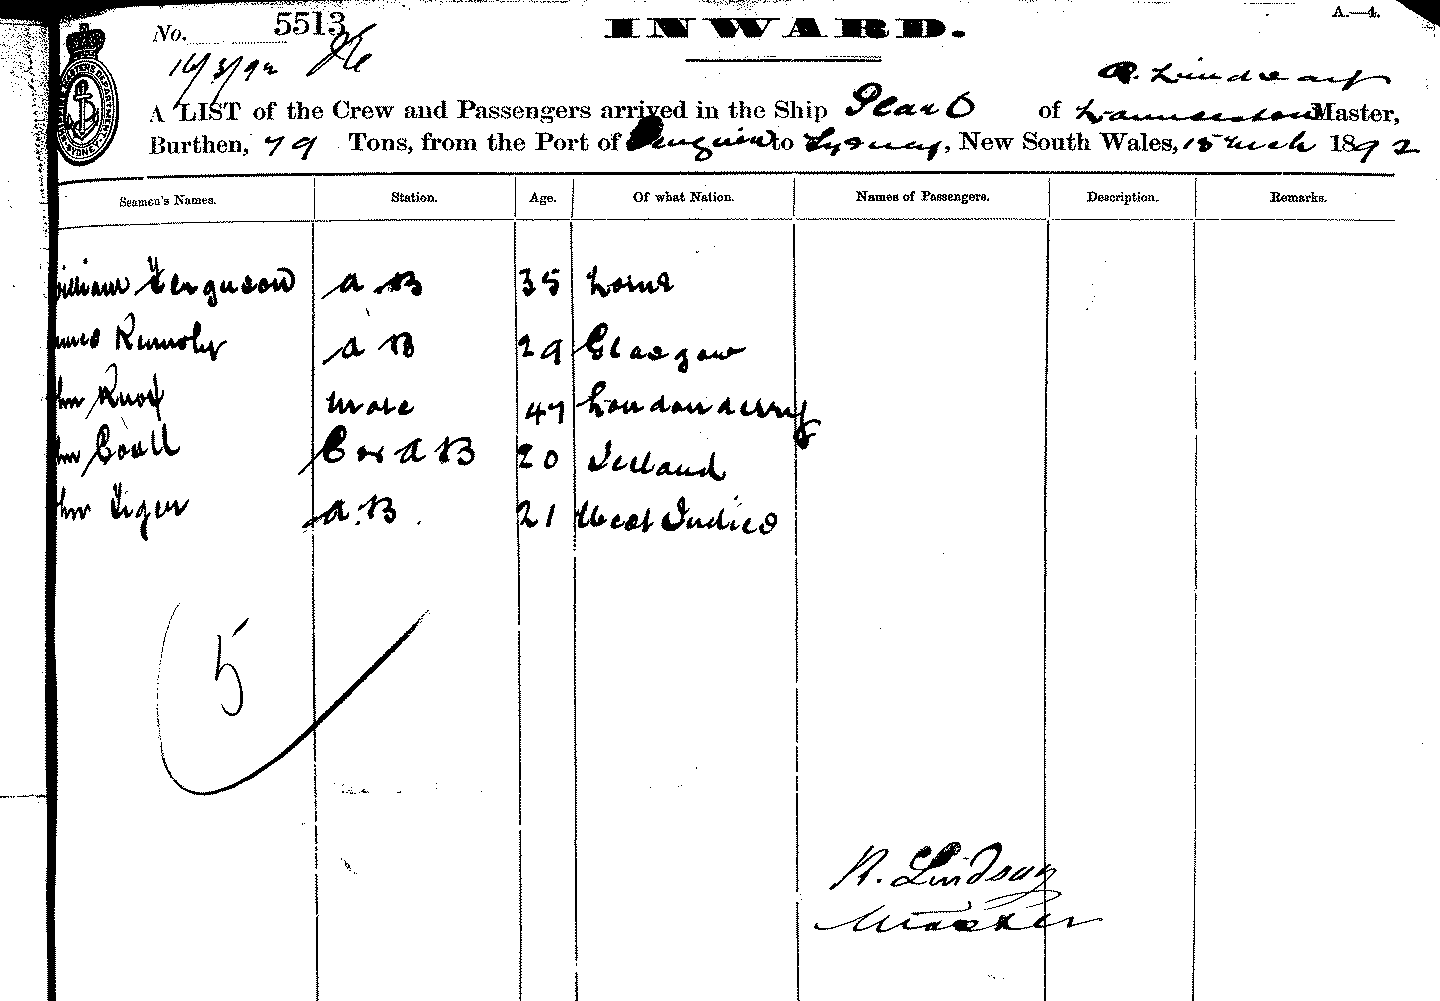 No. 5513
INWARD.
A.—4.
16/3/92
R. Lindsay
A LIST of the Crew and Passengers arrived in the Ship Pearl of Launceston Master,
Burthen, 79 Tons, from the Port of Penguin to Sydney, New South Wales, 15 March 1892
Seamen's Names. Station. Age. Of what Nation. Names of Passengers. Description. Remarks.
William Ferguson A B 35
A B 29 Glasgow
Knox Mate 47 Londonderry
A B 20 Ireland
A.B. 21 West Indies
5
R. Lindsay
Master